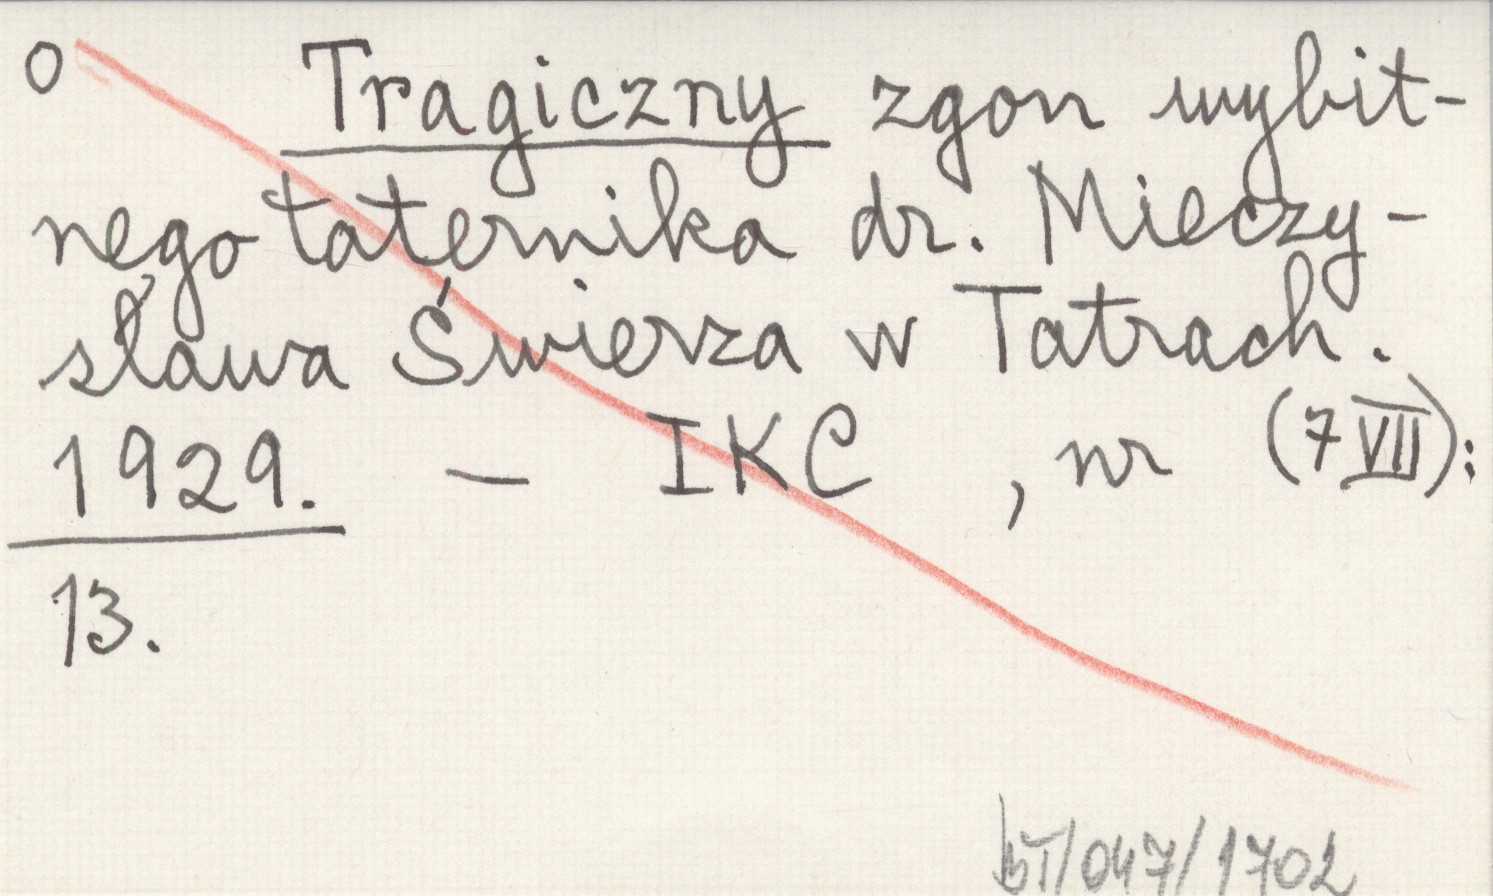 O Tragiczny zgon wybit-
nego taternika dr. Mieczy-
sława Świerza w Tatrach.
1929. — IKC , nr (7 VII):
13.
BT/047/1702